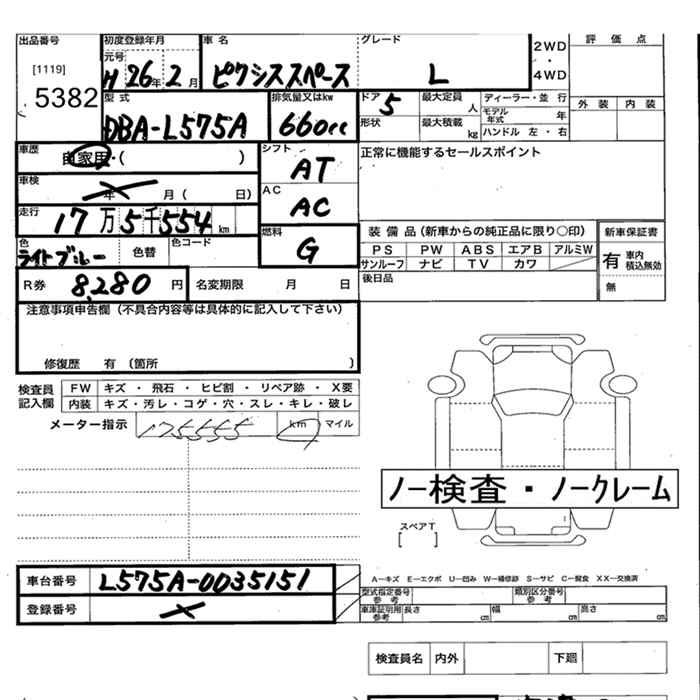 出品番号 初度登録年月 車名 グレード 2WD・4WD 評価点
[1119] 元号
5382 H 26年 2月 ピクシススペース L
外装 内装
型式 排気量又はkw ドア 5 最大定員 人 ディーラー・並行
DBA-L575A 660cc 形状 最大積載 kg モデル年式 年
ハンドル 左・右
車歴 自家用・( ) シフト AT 正常に機能するセールスポイント
車検 × 年 月( 日) AC AC
走行 17万5千554km
色 ライトブルー 色替 色コード 燃料 G
装備品(新車からの純正品に限り○印) 新車保証書
PS PW ABS エアB アルミW 有 車内積込無効
サンルーフ ナビ TV カワ 無
R券 8,280円 名変期限 月 日 後日品
注意事項申告欄(不具合内容等は具体的に記入して下さい)
修復歴 有 (箇所 )
検査員記入欄 FW キズ・飛石・ヒビ割・リペア跡・X要
内装 キズ・汚レ・コゲ・穴・スレ・キレ・破レ
メーター指示 175555 km マイル
ノー検査・ノークレーム
スペアT
[ ]
車台番号 L575A-0035151
登録番号 ×
A-キズ E-エクボ U-凹み W-補修跡 S-サビ C-腐食 XX-交換済
型式指定番号参考 類別区分番号参考
車庫証明用参考 長さ cm 幅 cm 高さ cm
検査員名 内外 下廻